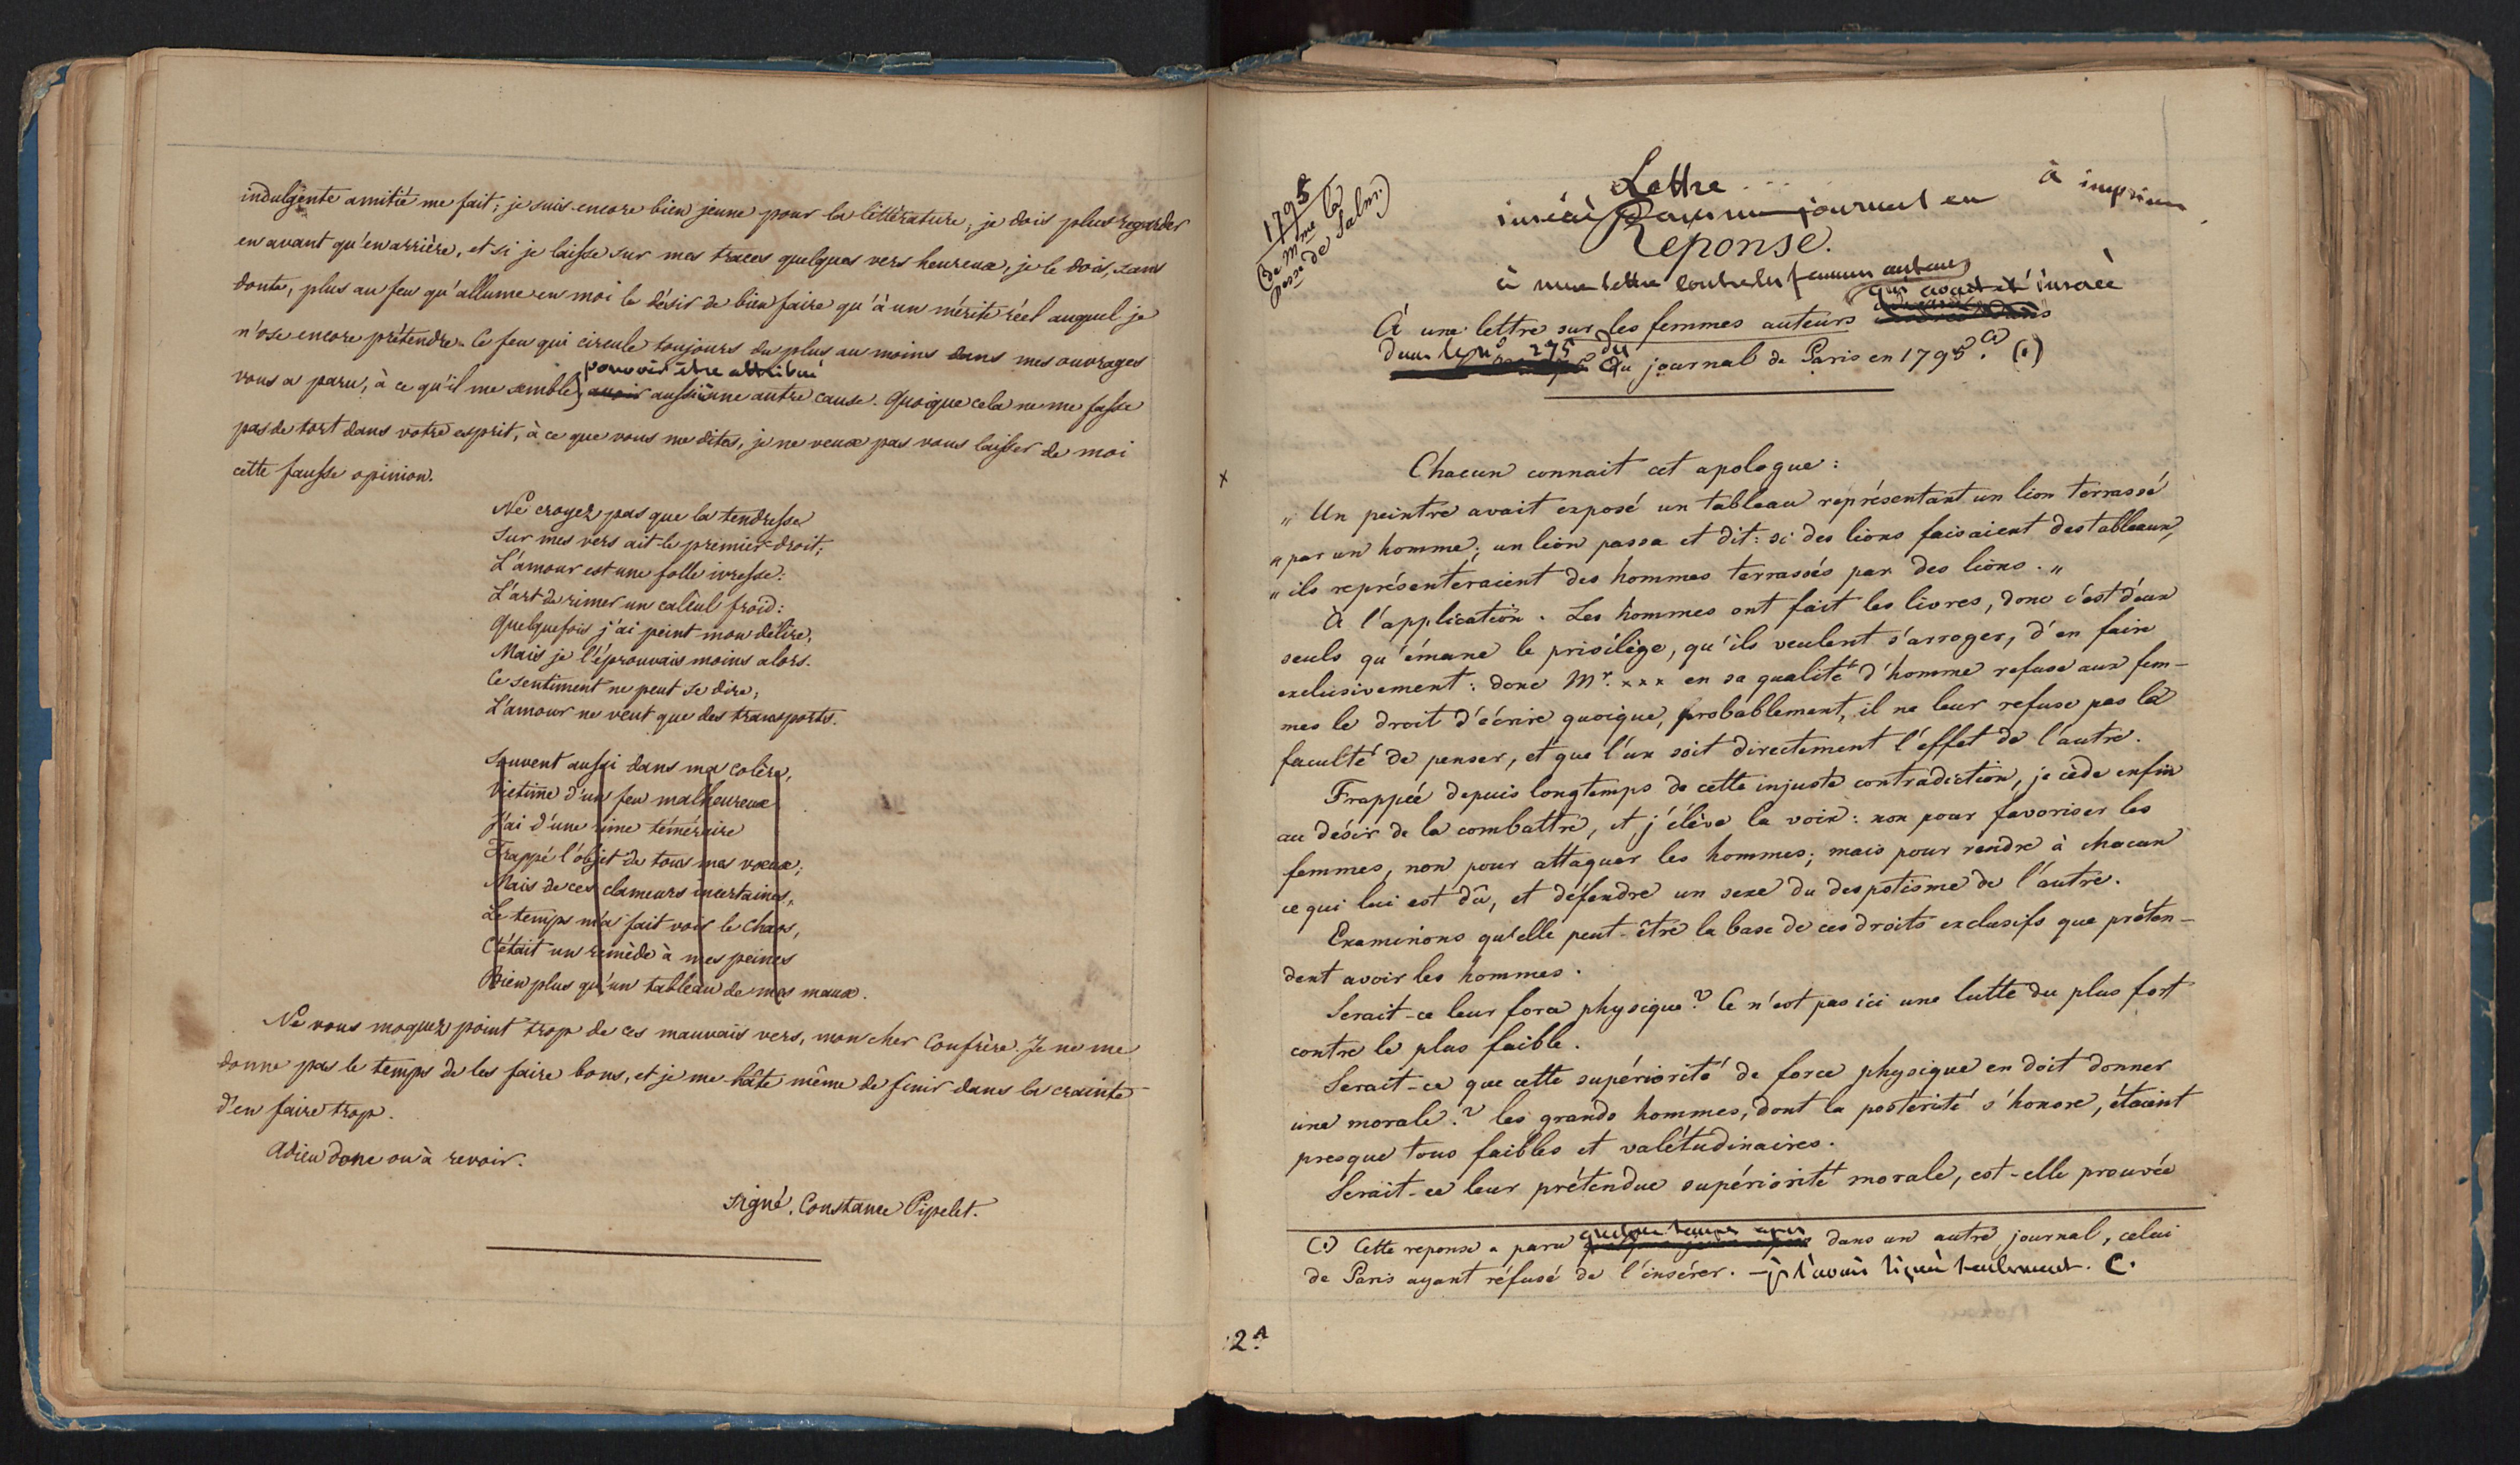 indulgente amitié me fait; je suis encore bien jeune pour la littérature, je dois plus regarder
en avant qu'en arrière, et si je laisse sur mes traces quelques vers heureux, je le dois, sans
doute, plus au feu qu'allume en moi le désir de bien faire qu'à un mérite réel auquel je
n'ose encore prétendre. Ce feu qui circule toujours du plus au moins dans mes ouvrages
pouvoir être attribué
vous a paru, à ce qu'il me semble, avoir aussi une autre cause. Quoique cela ne me fasse
pas de tort dans votre esprit, à ce que vous me dites, je ne veux pas vous laisser de moi
cette fausse opinion.
Ne croyez pas que la tendresse
Sur mes vers ait le premier droit;
L'amour est une folle ivresse:
L'art de rimer un calcul froid:
Quelquefois j'ai peint mon délire,
Mais je l'éprouvais moins alors.
Ce sentiment ne peut se dire,
L'amour ne veut que des transports.
Souvent aussi dans ma colère,
Victime d'un feu malheureux
J'ai d'une rime téméraire
Frappé l'objet de tous mes vœux;
Mais de ces clameurs incertaines,
Le temps m'a fait voir le chaos,
C'était un remède à mes peines
Bien plus qu'un tableau de mes maux.
Ne vous moquez point trop de ces mauvais vers, mon cher Confrère. Je ne me
donne pas le temps de les faire bons, et je me hâte même de finir dans la crainte
d'en faire trop.
Adieu donc ou à revoir.
signé, Constance Pipelet.
1795
(de Mme la
Pesse de Salm.)
à imprimer
Lettre
insérée dans un journal en
Reponse.
à une lettre contre les femmes auteurs
qui avait été insérée
À une lettre sur les femmes auteurs
dans le no 275 du
du journal de Paris en 1795. (1)
Chacun connait cet apologue:
" Un peintre avait exposé un tableau représentant un lion terrassé
" par un homme; un lion passa et dit: si des lions faisaient des tableaux,
" ils représenteraient des hommes terrassés par des lions. "
À l'application. Les hommes ont fait les livres, donc c'est d'eux
seuls qu'émane le privilège, qu'ils veulent s'arroger, d'en faire
exclusivement: donc Mr. xxx en sa qualité d'homme refuse aux fem-
mes le droit d'écrire quoique, probablement, il ne leur refuse pas la
faculté de penser, et que l'un soit directement l'effet de l'autre.
Frappée depuis longtemps de cette injuste contradiction, je cède enfin
au désir de la combattre, et j'élève la voix: non pour favoriser les
femmes, non pour attaquer les hommes; mais pour rendre à chacun
ce qui lui est dû, et défendre un sexe du despotisme de l'autre.
Examinons qu'elle peut-être la base de ces droits exclusifs que préten-
dent avoir les hommes.
Serait-ce leur force physique? Ce n'est pas ici une lutte du plus fort
contre le plus faible.
Serait-ce que cette supériorité de force physique en doit donner
une morale? les grands hommes, dont la postérité s'honore, étaient
presque tous faibles et valétudinaires.
Serait-ce leur prétendue supériorité morale, est-elle prouvée
quelque temps après
(1) Cette reponse a paru dans un autre journal, celui
de Paris ayant réfusé de l'insérer. – je l'avais signée seulement. C.
2.A